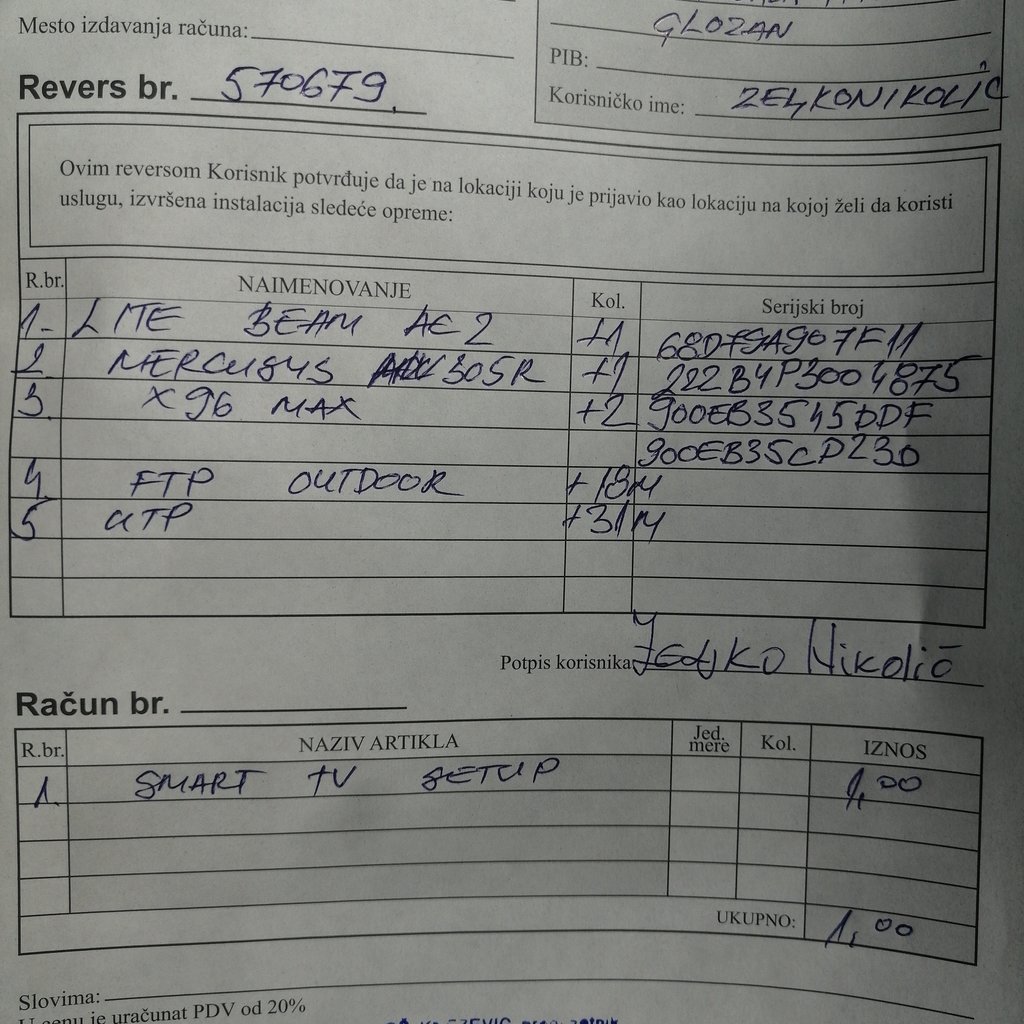 Mesto izdavanja računa:
GLOZAN
PIB:
Revers br. 570679.
Korisničko ime: ZELJKONIKOLIĆ
Ovim reversom Korisnik potvrđuje da je na lokaciji koju je prijavio kao lokaciju na kojoj želi da koristi
uslugu, izvršena instalacija sledeće opreme:
R.br. NAIMENOVANJE Kol. Serijski broj
1. LITE BEAM AC 2 +1 68D79A907F11
2 MERCUSYS 305R +1 222B4P3004875
3. X96 MAX +2 900EB3545DDF
900EB35CD230
4 FTP OUTDOOR +18M
5 UTP +31M
Potpis korisnika Željko Nikolić
Račun br.
R.br. NAZIV ARTIKLA Jed. mere Kol. IZNOS
1. SMART TV SETUP 1,00
UKUPNO: 1,00
Slovima:
U cenu je uračunat PDV od 20%